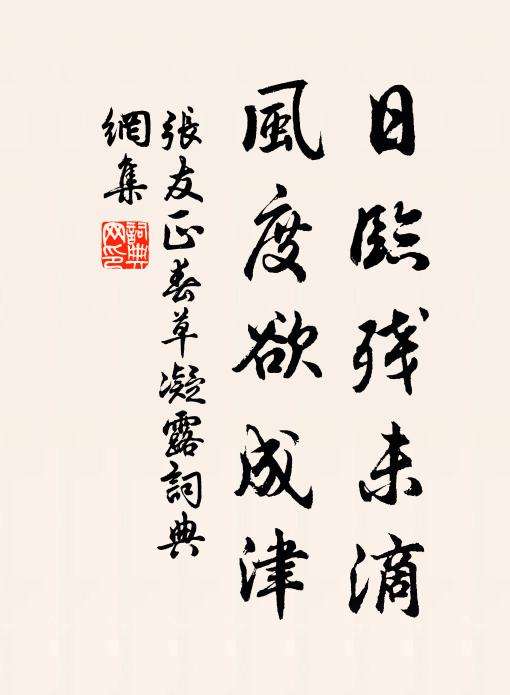 日臨殘未滴
風度欲成津
張友正春草凝露詞典
網集
詞典
网印